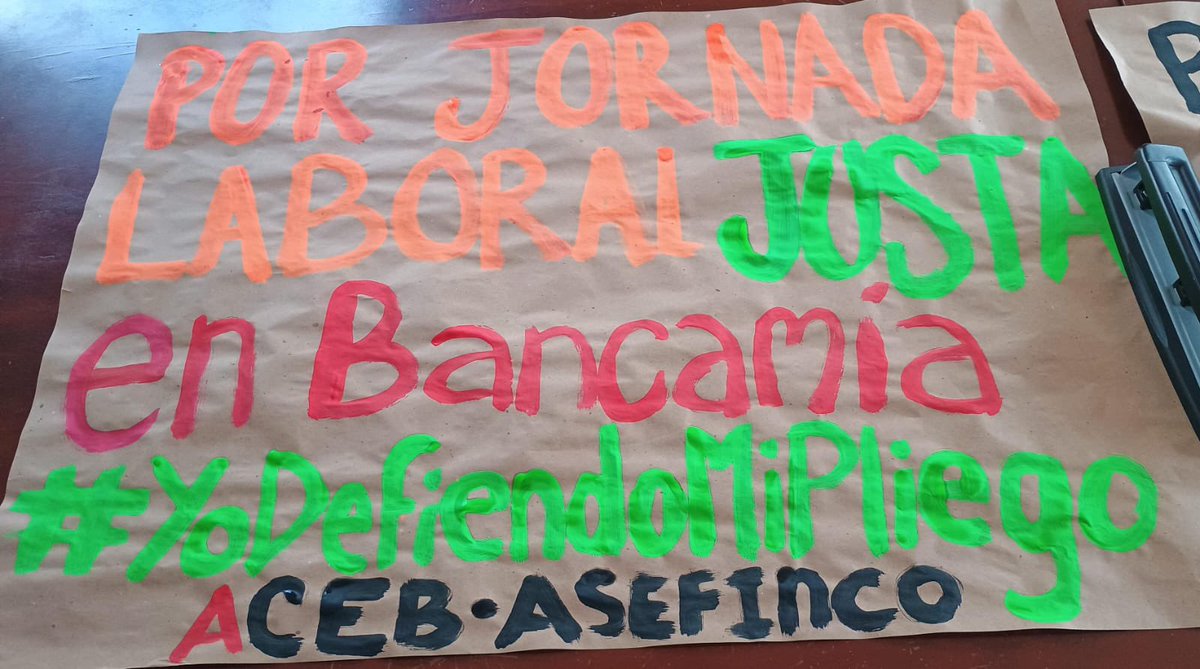 POR JORNADA
LABORAL JUSTA
en Bancamía
#YoDefiendoMiPliego
ACEB·ASEFINCO
P